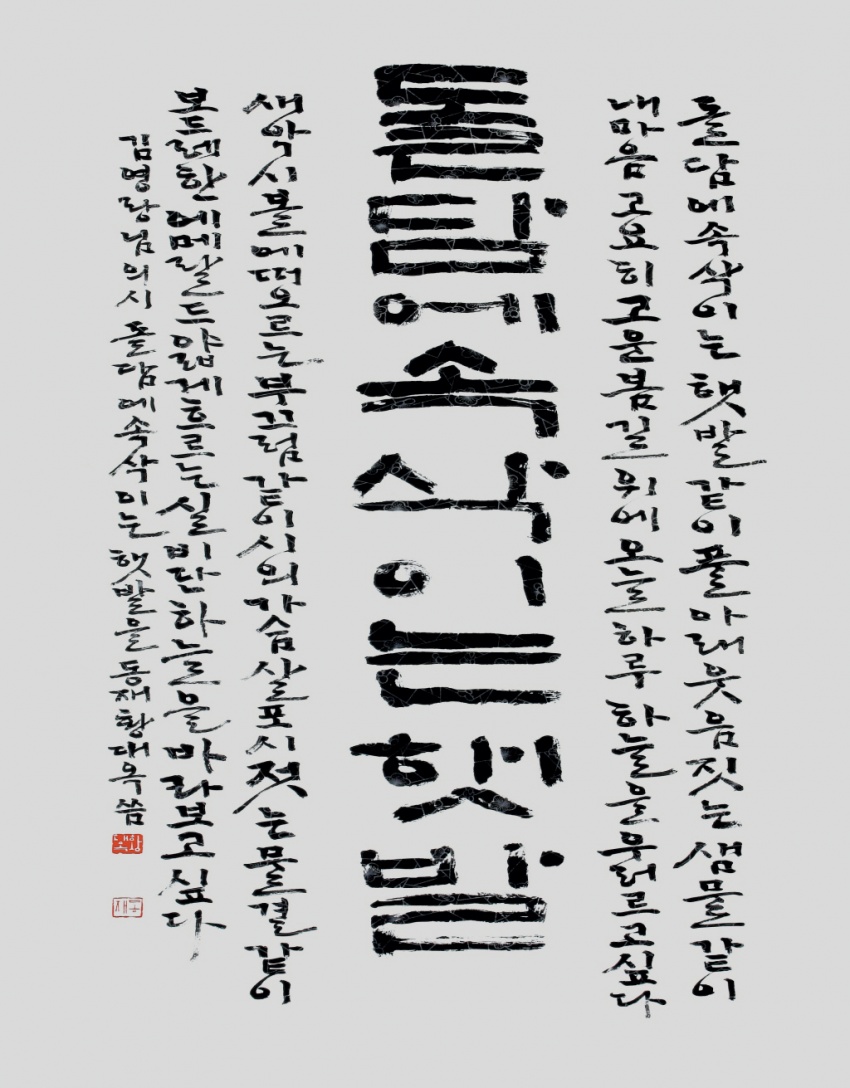 돌담에 속삭이는 햇발같이 풀아래 웃음짓는 샘물같이
내마음 고요히 고운 봄길 위에 오늘 하루 하늘을 우러르고싶다
돌담에 속삭이는 햇발
새악시 볼에 떠오르는 부끄럼같이 시의 가슴 살포시 젖는 물결같이
보드레한 에메랄드 얇게 흐르는 실비단 하늘을 바라보고싶다
김영랑님의 시 돌담에 속삭이는 햇발을 동재 황대옥 씀